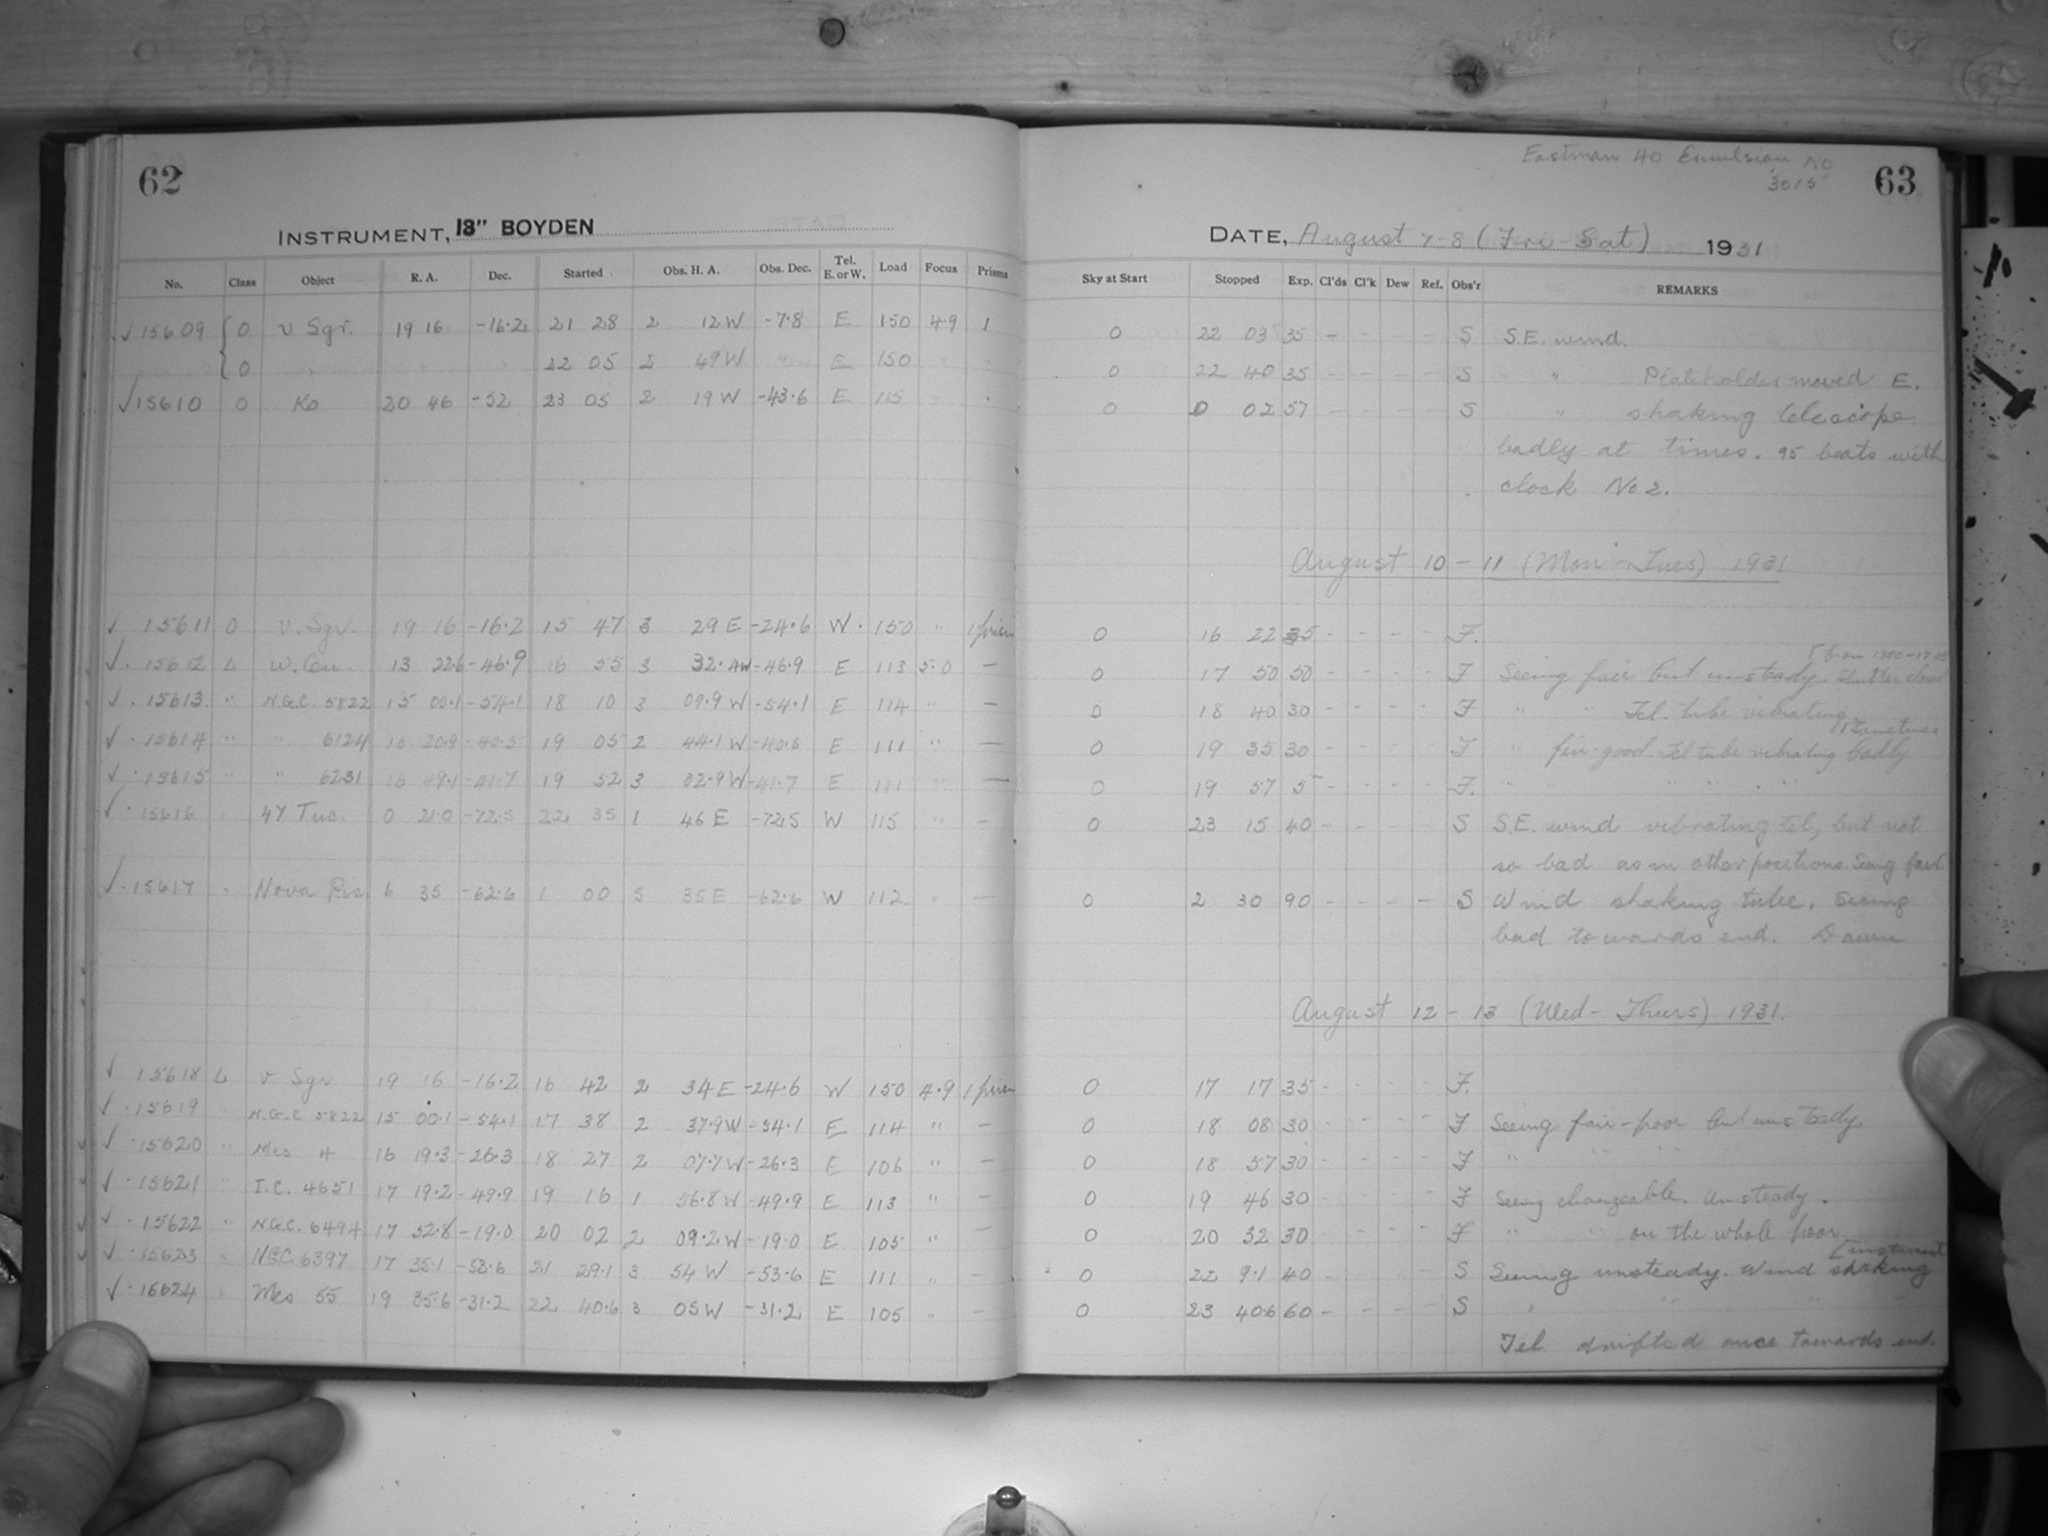 62
INSTRUMENT, 13" BOYDEN
No. Class Object R. A. Dec. Started Obs. H. A. Obs. Dec. Tel. E. or W. Load Focus Prisms
√15609 { 0 υ Sgr. 19 16 -16.2 21 28 2 12 W -7.8 E 150 4.9 1
0 " 22 05 2 49 W " E 150 " "
√15610 0 Ko 20 46 -52 23 05 2 19 W -43.6 E 115 " "
√ 15611 0 υ. Sgr. 19 16 -16.2 15 47 3 29 E -24.6 W. 150 " 1 prism
√. 15612 L ω. Cen. 13 22.6 -46.9 16 55 3 32. W -46.9 E 113 5.0 —
√. 15613 " N.G.C. 5822 15 00.1 -54.1 18 10 3 09.9 W -54.1 E 114 " —
√. 15614 " " 6124 16 20.9 -40.5 19 05 2 44.1 W -40.5 E 111 " —
√. 15615 " " 6231 16 49.1 -41.7 19 52 3 02.9 W -41.7 E 111 " —
√. 15616 " 47 Tuc. 0 21.0 -72.5 22 35 1 46 E -72.5 W 115 " —
√. 15617 " Nova Pic. 6 35 -62.6 1 00 5 35 E -62.6 W 112 " —
√ 15618 L υ Sgr 19 16 -16.2 16 42 2 34 E -24.6 W 150 4.9 1 prism
√. 15619 " N.G.C 5822 15 00.1 -54.1 17 38 2 37.9 W -54.1 E 114 " —
√. 15620 " Mes 4 16 19.3 -26.3 18 27 2 07.7 W -26.3 E 106 " —
√. 15621 " I.C. 4651 17 19.2 -49.9 19 16 1 56.8 W -49.9 E 113 " —
√. 15622 " N.G.C. 6494 17 52.8 -19.0 20 02 2 09.2 W -19.0 E 105 " —
√. 15623 " NGC. 6397 17 35.1 -53.6 21 29.1 3 54 W -53.6 E 111 " —
√. 15624 " Mes 55 19 35.6 -31.2 22 40.6 3 05 W -31.2 E 105 " —
Eastman 40 Emulsion No
3015
63
DATE, August 7-8 (Fri-Sat) 1931
Sky at Start Stopped Exp. Cl'ds Cl'k Dew Ref. Obs'r REMARKS
0 22 03 35 - - - - S S.E. wind.
0 22 40 35 - - - - S " Plateholder moved E.
0 0 02 57 - - - - S " shaking telescope
badly at times. 95 beats with
clock No 2.
August 10-11 (Mon-Tues) 1931
0 16 22 35 - - - - F.
[from 1700-1705
0 17 50 50 - - - - F Seeing fair but unsteady. Shutter closed
0 18 40 30 - - - - F " " Tel. tube vibrating
[sometimes
0 19 35 30 - - - - F " fair-good. Tel tube vibrating badly
0 19 57 5 - - - - F. " " " " "
0 23 15 40 - - - - S S.E. wind vibrating tel, but not
so bad as in other positions. Seeing fair.
0 2 30 90 - - - - S Wind shaking tube. Seeing
bad towards end. Dawn
August 12-13 (Wed-Thurs) 1931.
0 17 17 35 - - - - F.
0 18 08 30 - - - - F Seeing fair-poor but unsteady.
0 18 57 30 - - - - F " " " "
0 19 46 30 - - - - F Seeing changeable. Unsteady.
0 20 32 30 - - - - F " " on the whole poor
[instrument
0 22 9.1 40 - - - - S Seeing unsteady. Wind shaking
0 23 40.6 60 - - - - S " " "
Tel drifted once towards end.